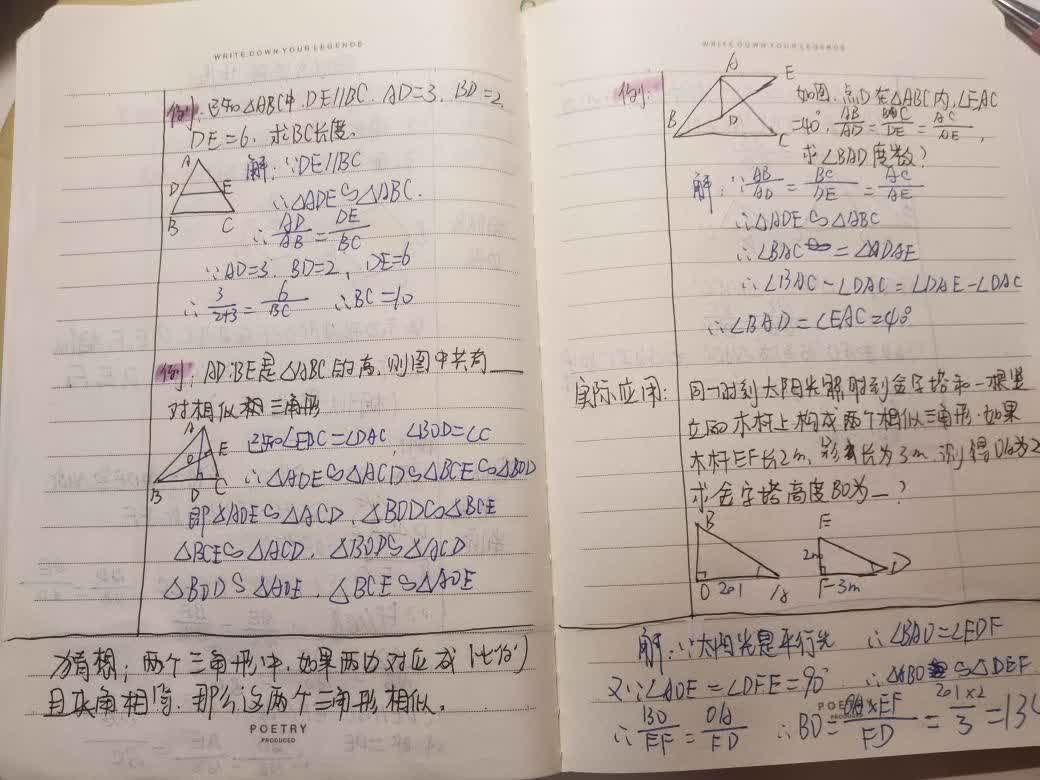 WRITE DOWN YOUR LEGENDE
例: 已知△ABC中, DE//BC, AD=3, BD=2,
DE=6, 求BC长度。
A
D E
B C
解: ∵DE//BC
∴△ADE∽△ABC.
∴AD/AB=DE/BC
∵AD=3, BD=2, DE=6
∴3/2+3=6/BC ∴BC=10
例: AD、BE是△ABC的高, 则图中共有___
对相似三角形
A
E
O
B D C
已知∠EBC=∠DAC, ∠BOD=∠C
∴△AOE∽△ACD∽△BCE∽△BOD
即△AOE∽△ACD、△BOD∽△BCE
△BCE∽△ACD、△BOD∽△ACD
△BOD∽△AOE、△BCE∽△AOE
猜想: 两个三角形中, 如果两边对应成比例
且夹角相等, 那么这两个三角形相似。
POETRY
PRODUCED
WRITE DOWN YOUR LEGENDE
例:
A E
B D C
如图, 点D在△ABC内, ∠EAC
=40°, AB/AD=BC/DE=AC/AE,
求∠BAD度数?
解: ∵AB/AD=BC/DE=AC/AE
∴△ADE∽△ABC
∴∠BAC=∠DAE
∴∠BAC-∠DAC=∠DAE-∠DAC
∴∠BAD=∠EAC=40°
实际应用: 同一时刻太阳光照射到金字塔和一根竖
立的木杆上构成两个相似三角形. 如果
木杆EF长2m, 影长为3m, 测得OA为2
求金字塔高度BO为_?
B E
2m
O 201 A F 3m D
解: ∵太阳光是平行光 ∴∠BAO=∠EDF
又∵∠AOE=∠DFE=90° ∴△ABO∽△DEF
∴BO/EF=OA/FD ∴BO=OA×EF/FD=201×2/3=134
POETRY
PRODUCED